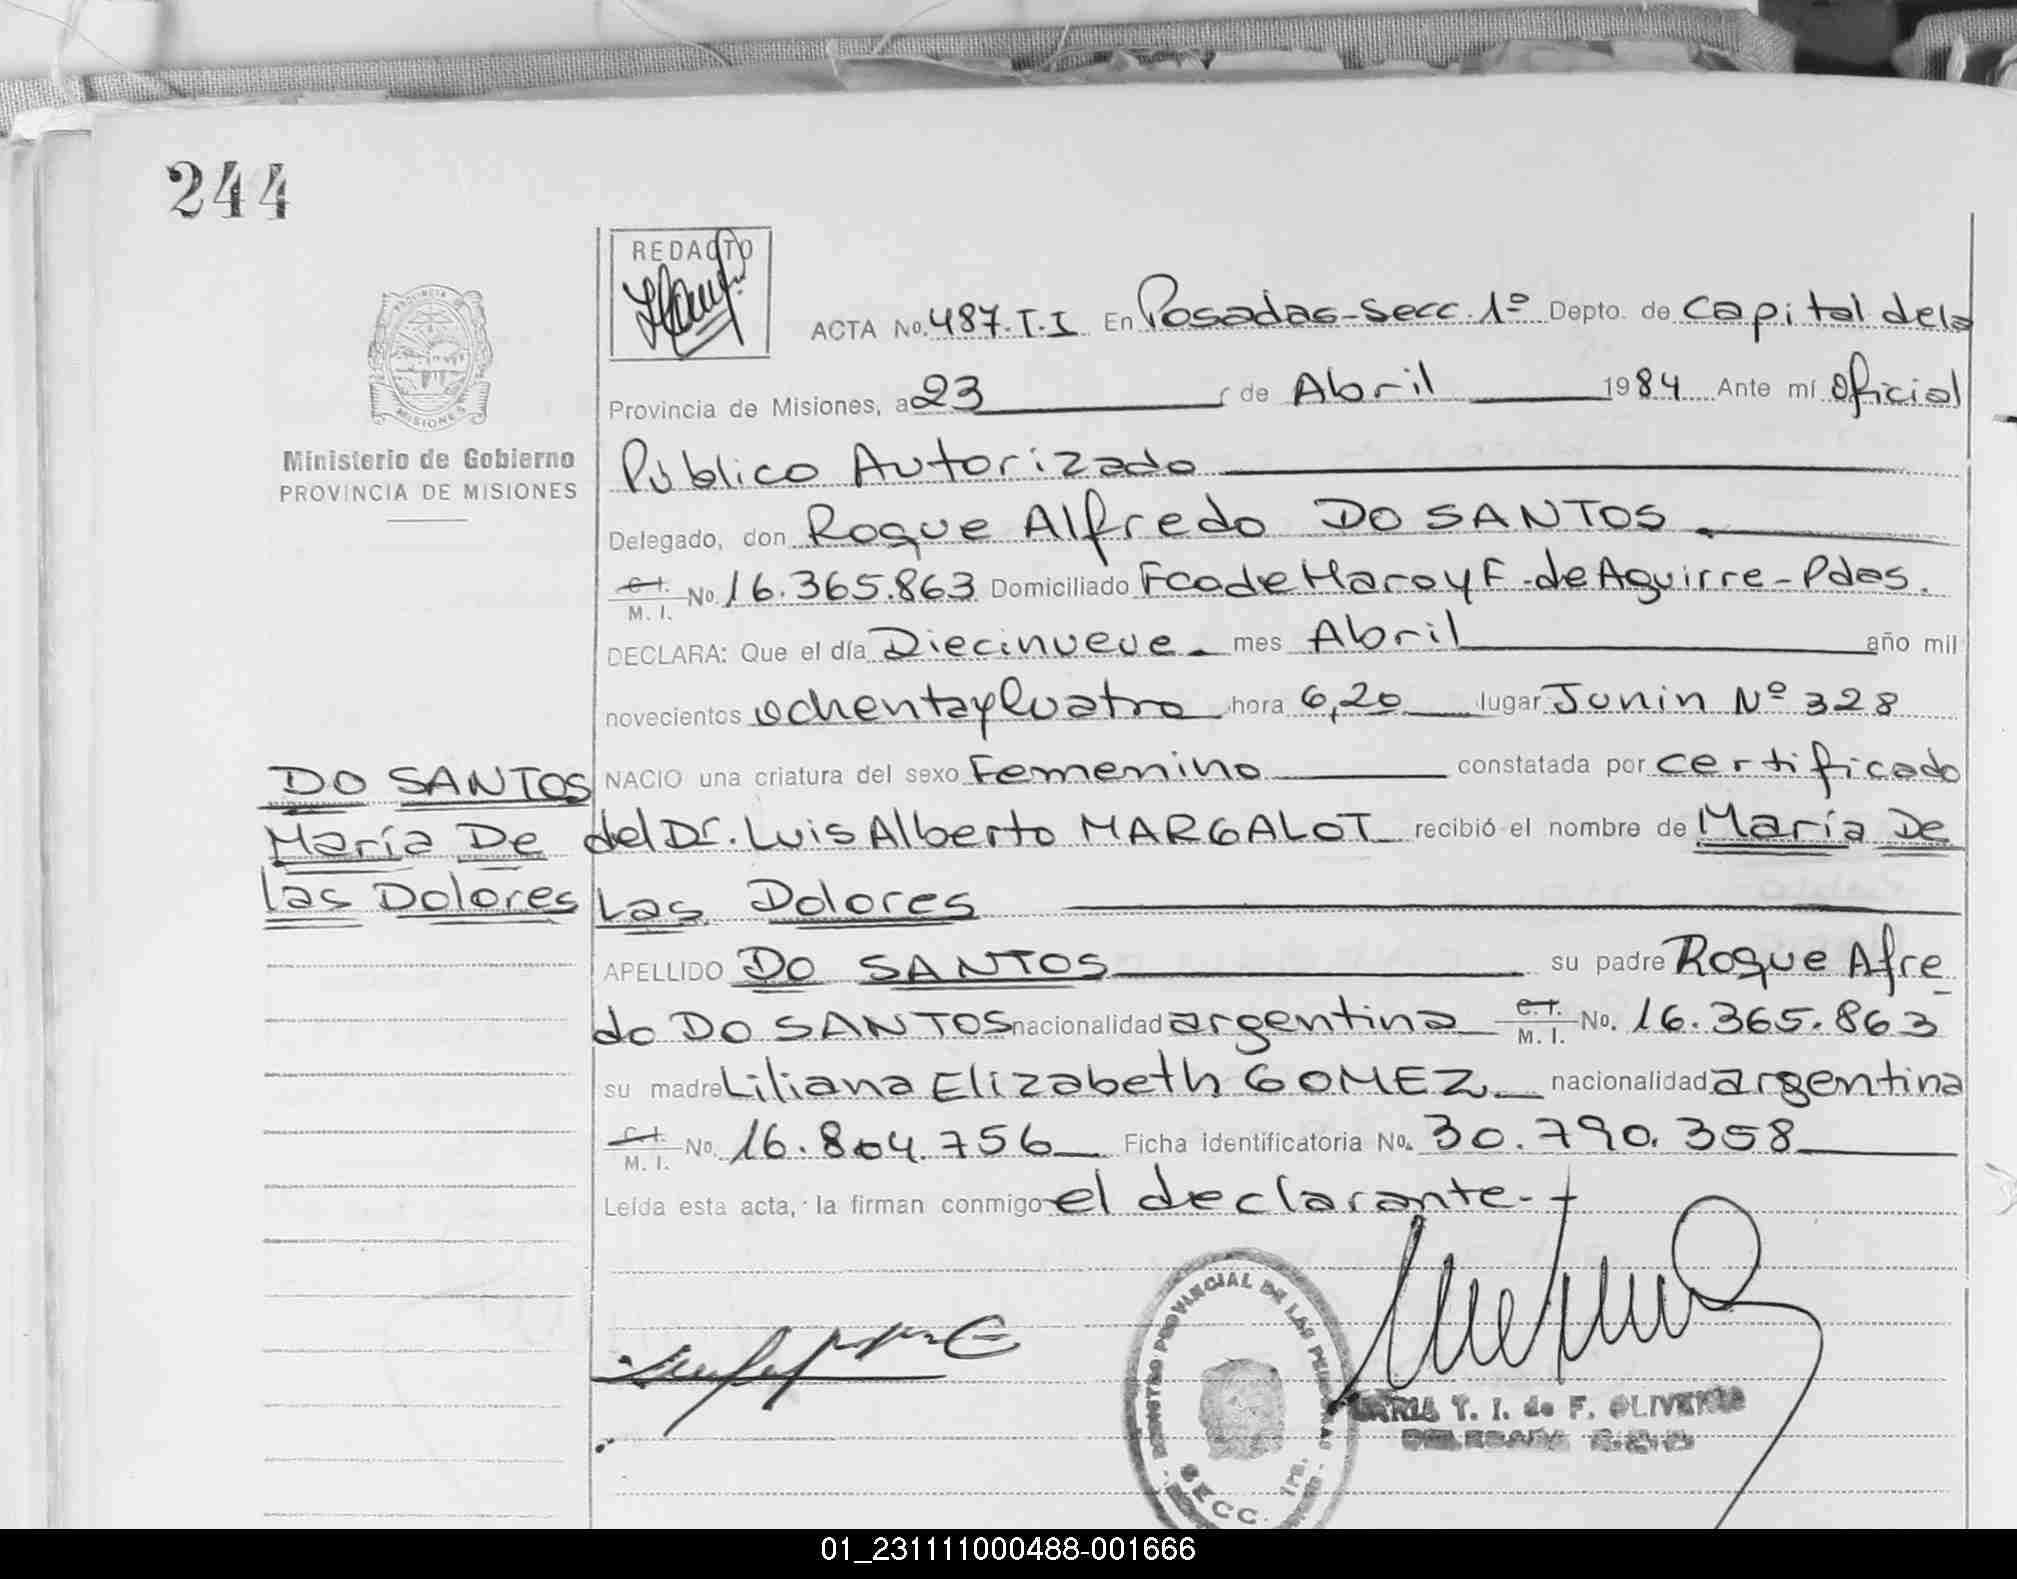 244
REDACTO
ACTA No. 487. T. I En Posadas - Secc. 1º Depto. de Capital de la
Provincia de Misiones, a 23 de Abril 1984 Ante mí Oficial
Ministerio de Gobierno
PROVINCIA DE MISIONES
Público Autorizado
Delegado, don Roque Alfredo DO SANTOS.
C.I. M. I. No. 16.365.863 Domiciliado Fco de Haro y F. de Aguirre - Pdas.
DECLARA: Que el día Diecinueve mes Abril año mil
novecientos ochenta y Cuatro hora 6,20 lugar Junin Nº 328
DO SANTOS NACIO una criatura del sexo Femenino constatada por certificado
María De del Dr. Luis Alberto MARGALOT recibió el nombre de María De
las Dolores Las Dolores
APELLIDO DO SANTOS su padre Roque Afre
do DO SANTOS nacionalidad argentina C.I. M. I. No. 16.365.863
su madre Liliana Elizabeth GOMEZ nacionalidad argentina
C.I. M. I. No. 16.804.756 Ficha identificatoria No. 30.790.358
Leída esta acta, la firman conmigo el declarante.-
REGISTRO PROVINCIAL DE LAS PERSONAS
SECC. 1ra.
MARIA T. I. de F. OLIVEIRA
DELEGADA
01_231111000488-001666